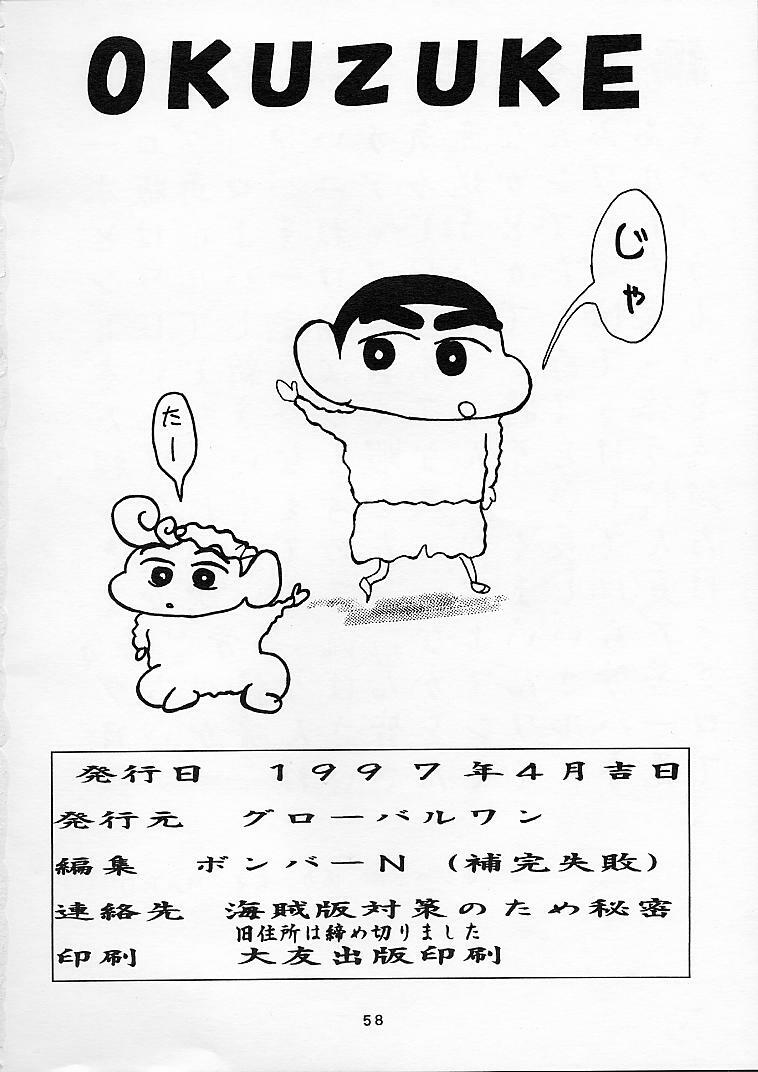 OKUZUKE
じゃ
たー
発行日 1997年4月吉日
発行元 グローバルワン
編集 ボンバーN (補完失敗)
連絡先 海賊版対策のため秘密
旧住所は締め切りました
印刷 大友出版印刷
58